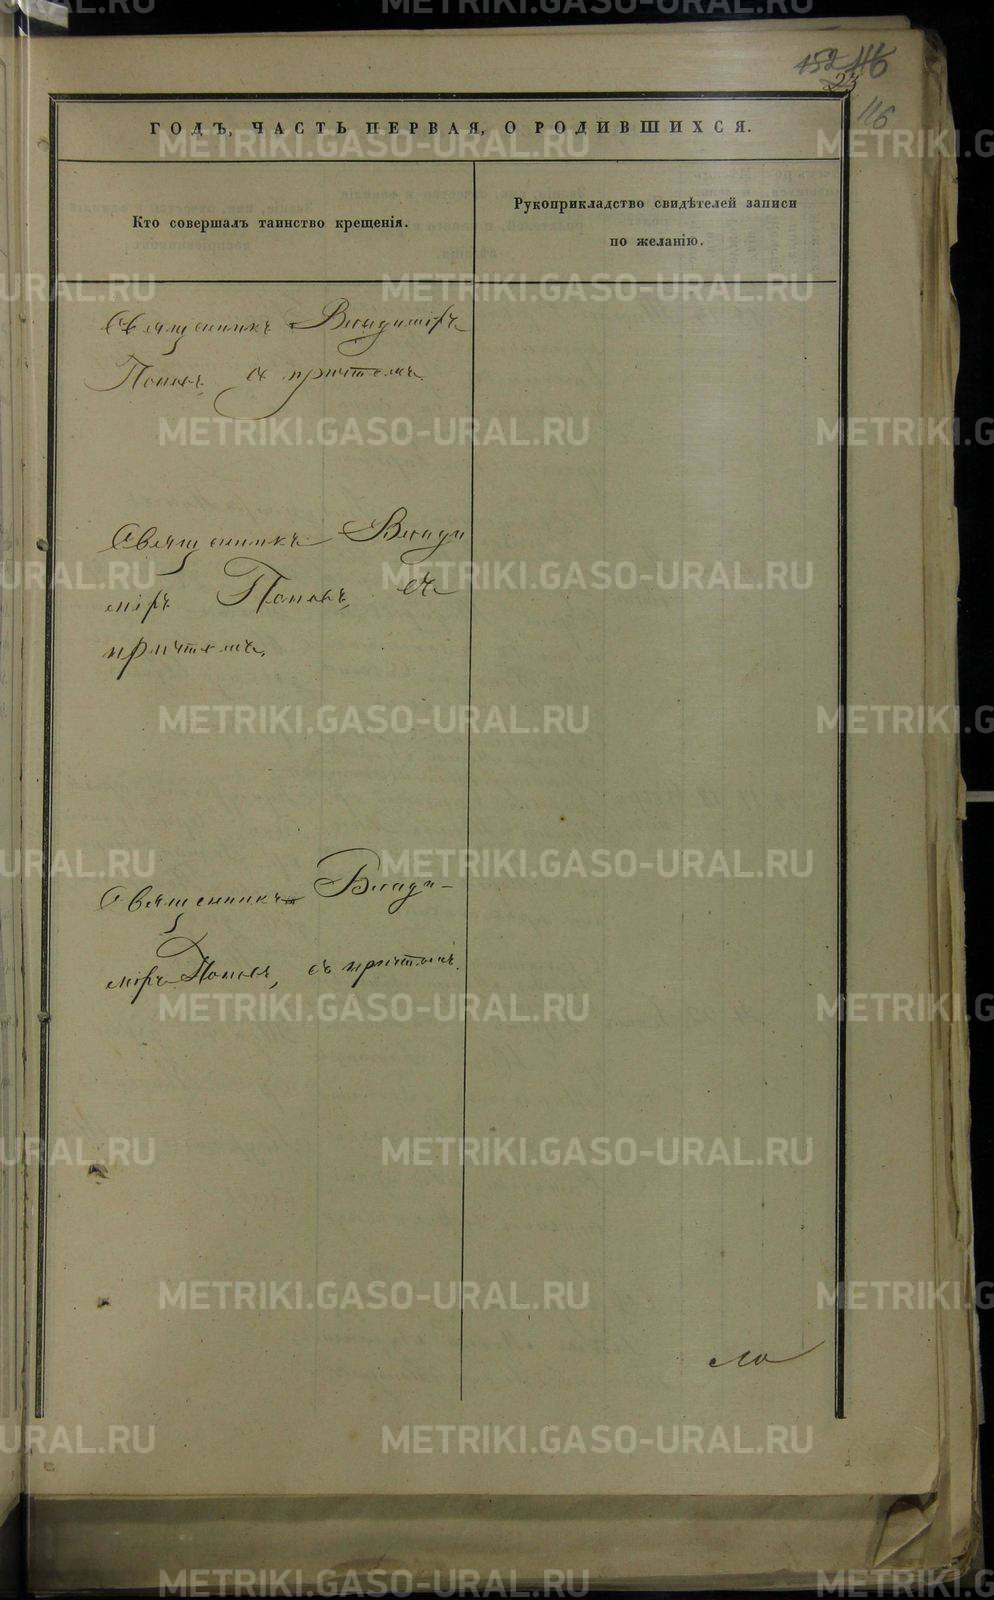 152 116
23
116
ГОДЪ, ЧАСТЬ ПЕРВАЯ, О РОДИВШИХСЯ.
Кто совершалъ таинство крещенія.
Рукоприкладство свидѣтелей записи
по желанію.
Священникъ Владиміръ
Поповъ, съ причтомъ.
Священникъ Влади
міръ Поповъ, съ
причтомъ.
Священникъ Влади-
міръ Поповъ, съ причтомъ.
METRIKI.GASO-URAL.RU